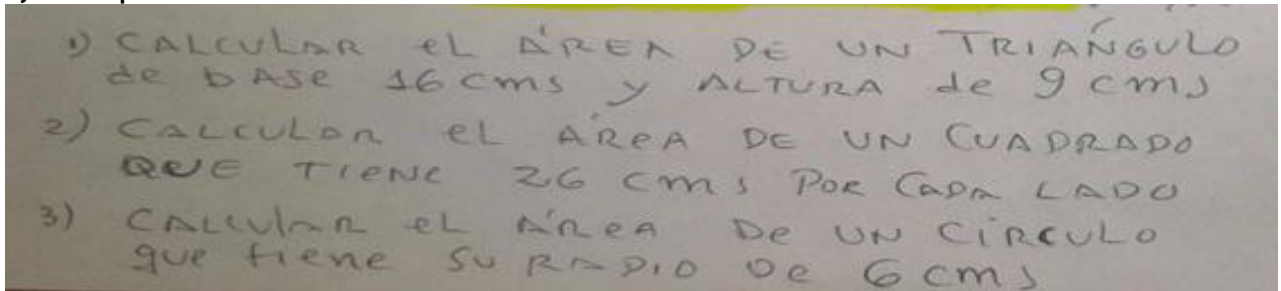 1) CALCULAR eL ÁREA DE UN TRIÁNGULO
de bASe 16 cms y ALTURA de 9 cms
2) CALCULAR eL ÁReA DE UN CUADRADO
QUE TIENE 26 cms POR CADA LADO
3) CALCULAR eL ÁReA De UN CÍRCULO
que tiene SU RADIO De 6 cms